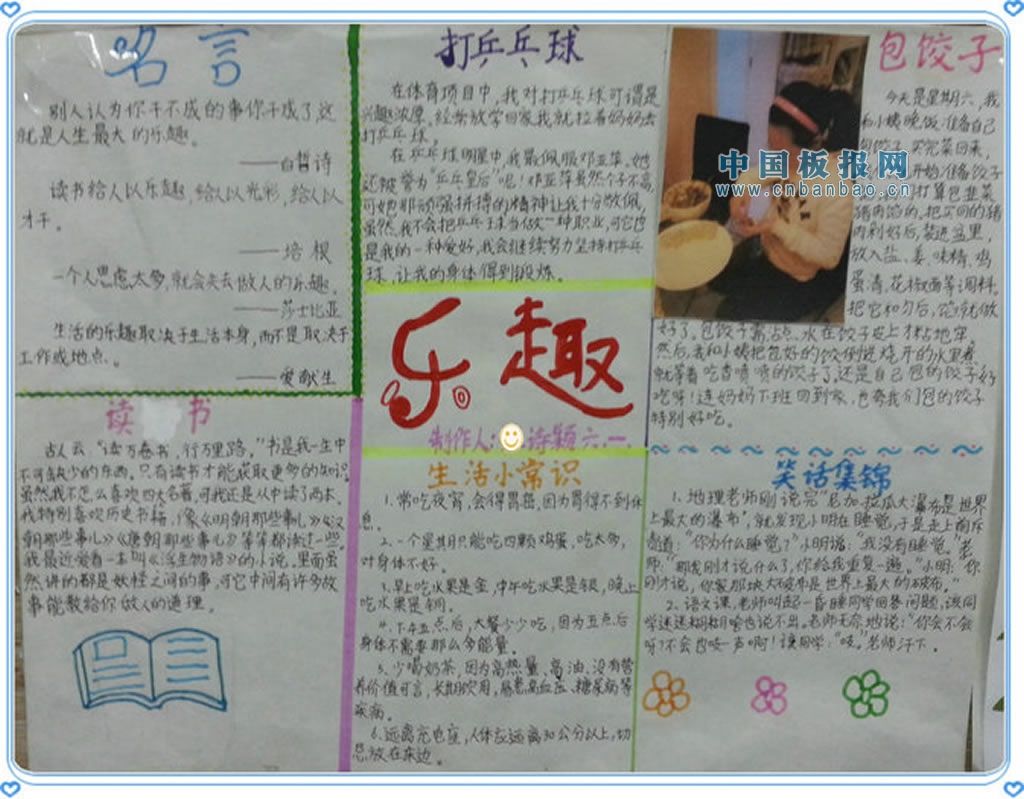 名言
别人认为你干不成的事你干成了,这
就是人生最大的乐趣。
——白哲诗
读书给人以乐趣,给人以光彩,给人以
才干。
——培根
一个人思虑太多,就会失去做人的乐趣。
——莎士比亚
生活的乐趣取决于生活本身,而不是取决于
工作或地点。
——爱献生
读书
古人云:“读万卷书,行万里路。”书是我一生中
不可缺少的东西。只有读书才能获取更多的知识。
虽然,我不怎么喜欢四大名著,可我还是从中读了两本。
我特别喜欢历史书籍,像《明朝那些事儿》《汉
朝那些事儿》《唐朝那些事儿》等等都读过一些。
我最近爱看一本叫《浮生物语》的小说,里面虽
然讲的都是妖怪之间的事,可它中间有许多故
事能教给你做人的道理。
打乒乓球
在体育项目中,我对打乒乓球可谓是
兴趣浓厚,经常放学回家,我就拉着妈妈去
打乒乓球。
在乒乓球明星中,我最佩服邓亚萍。她
还被誉为“乒乓皇后”呢!邓亚萍虽然个子不高,
可她那顽强拼搏的精神让我十分敬佩。
虽然,我不会把乒乓球当做一种职业,可它也
是我的一种爱好,我会继续努力坚持打乒乓
球,让我的身体得到锻炼。
乐趣
制作人: 诗颖 六.一
生活小常识
1、常吃夜宵,会得胃癌,因为胃得不到休
息。
2、一个星期只能吃四颗鸡蛋,吃太多,
对身体不好。
3、早上吃水果是金,中午吃水果是银,晚上
吃水果是铜。
4、下午五点后,大餐少少吃,因为五点后
身体不需要那么多能量。
5、少喝奶茶,因为高热量、高油、没有营
养价值可言,长期饮用,易患高血压、糖尿病等
疾病。
6、远离充电座,人体应远离30公分以上,切
忌放在床边。
包饺子
今天是星期六,我
和小姨晚饭准备自己
包饺子。买完菜回来,
开始准备饺子
打算包韭菜
猪肉馅的。把买回的猪
肉剁好后,装进盆里,
放入盐、姜、味精、鸡
蛋清、花椒面等调料。
把它和匀后,馅就做
好了。包饺子需沾点水在饺子皮上才粘地牢。
然后,我和小姨把包好的饺倒进烧开的水里煮,
就等着吃香喷喷的饺子了,还是自己包的饺子好
吃呀!连妈妈下班回到家,也夸我们包的饺子
特别好吃。
笑话集锦
1、地理老师刚说完“尼加拉瓜大瀑布是世界
上最大的瀑布”,就发现小明在睡觉,于是走上前斥
责道:“你为什么睡觉?”小明说:“我没有睡觉。”老
师:“那我刚才说什么了,你给我重复一遍。”小明:“你
刚才说,你家那块大破布是世界上最大的破布。”
2、语文课,老师叫起一昏睡同学回答问题,该同
学迷迷糊糊啥也说不出。老师无奈地说:“你会不会
呀?不会也吱一声啊!”该同学:“吱。”老师汗下。
中国板报网
www.cnbanbao.cn